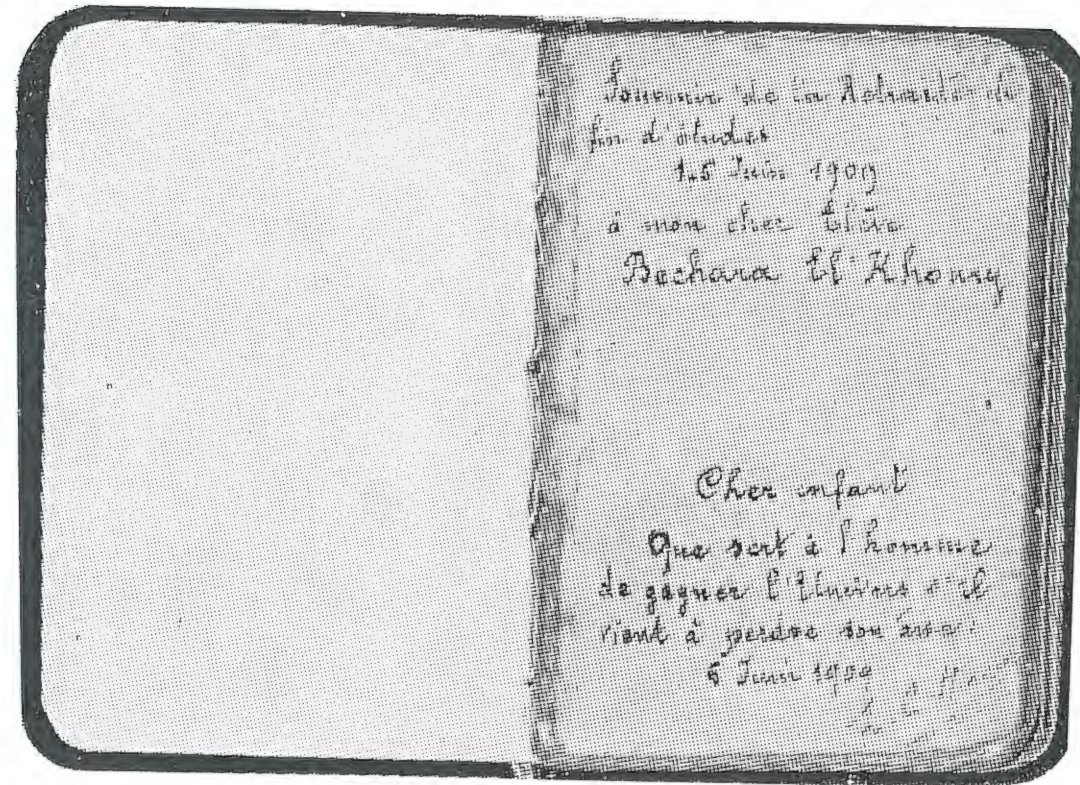 Souvenir de la Retraite de
fin d'études
1-5 Juin 1909
à mon cher Elève
Bechara El Khoury
Cher enfant
Que sert à l'homme
de gagner l'Univers s'il
vient à perdre son âme.
5 Juin 1909